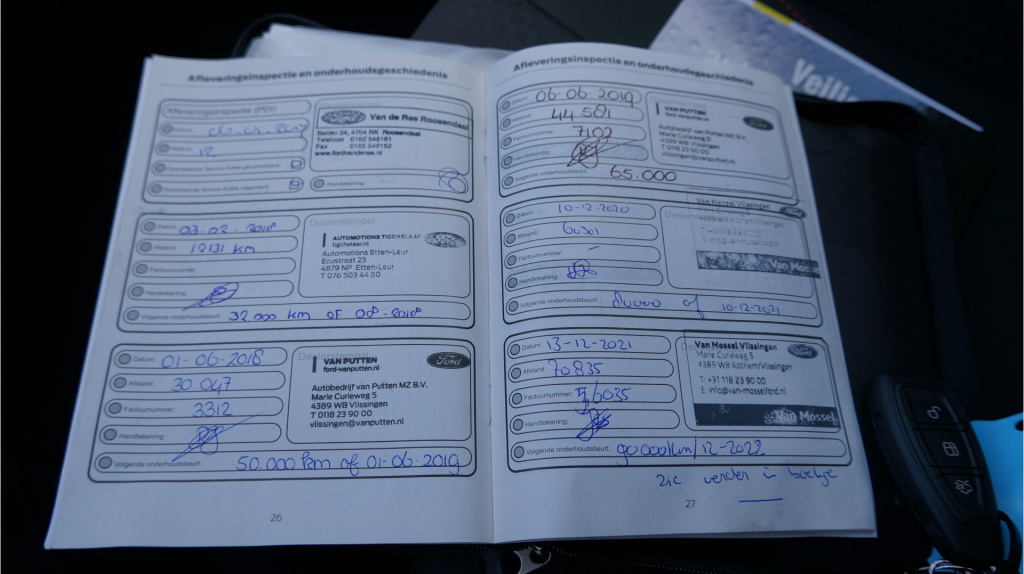 Afleveringsinspectie en onderhoudsgeschiedenis
Afleveringsinspectie (PDI)
Datum:
Afstand: 12
Handtekening:
Ford
Van de Ree Roosendaal
Belder 24, 4704 RK Roosendaal
Telefoon 0165
Fax 0165
Dealerstempel
Datum: 03-02-2018
Afstand: 12131 km
Factuurnummer:
Handtekening:
Volgende onderhoudsbeurt: 32.000 km OF 08-2018
AUTOMOTIONS TIGCHELAAR
tigchelaar.nl
Automotions Etten-Leur
Ecustraat 23
4879 NP Etten-Leur
T 076 503 44 50
Datum: 01-06-2018
Afstand: 30 047
Factuurnummer: 3312
Handtekening:
Volgende onderhoudsbeurt: 50.000 km of 01-06-2019
VAN PUTTEN
ford-vanputten.nl
Ford
Autobedrijf van Putten MZ B.V.
Marie Curieweg 5
4389 WB Vlissingen
T 0118 23 90 00
vlissingen@vanputten.nl
26
Afleveringsinspectie en onderhoudsgeschiedenis
Datum: 06-06-2019
Afstand: 44 581
Factuurnummer: 7102
Handtekening:
Volgende onderhoudsbeurt: 65.000
VAN PUTTEN
ford-vanputten.nl
Autobedrijf van Putten MZ B.V.
Marie Curieweg 5
4389 WB Vlissingen
T 0118 23 90 00
vlissingen@vanputten.nl
Datum: 10-12-2020
Afstand: 60301
Factuurnummer: -
Handtekening:
Volgende onderhoudsbeurt: of 10-12-2021
Van Mossel Vlissingen
Dealerstempel
Van Mossel
Datum: 13-12-2021
Afstand: 70835
Factuurnummer:
Handtekening:
Volgende onderhoudsbeurt: 90000km/12-2022
Van Mossel Vlissingen
Marie Curieweg 5
4389 WB Ritthem/Vlissingen
T: +31 118 23 90 00
E: info@van-mosselford.nl
Van Mossel
zie verder in boekje
27